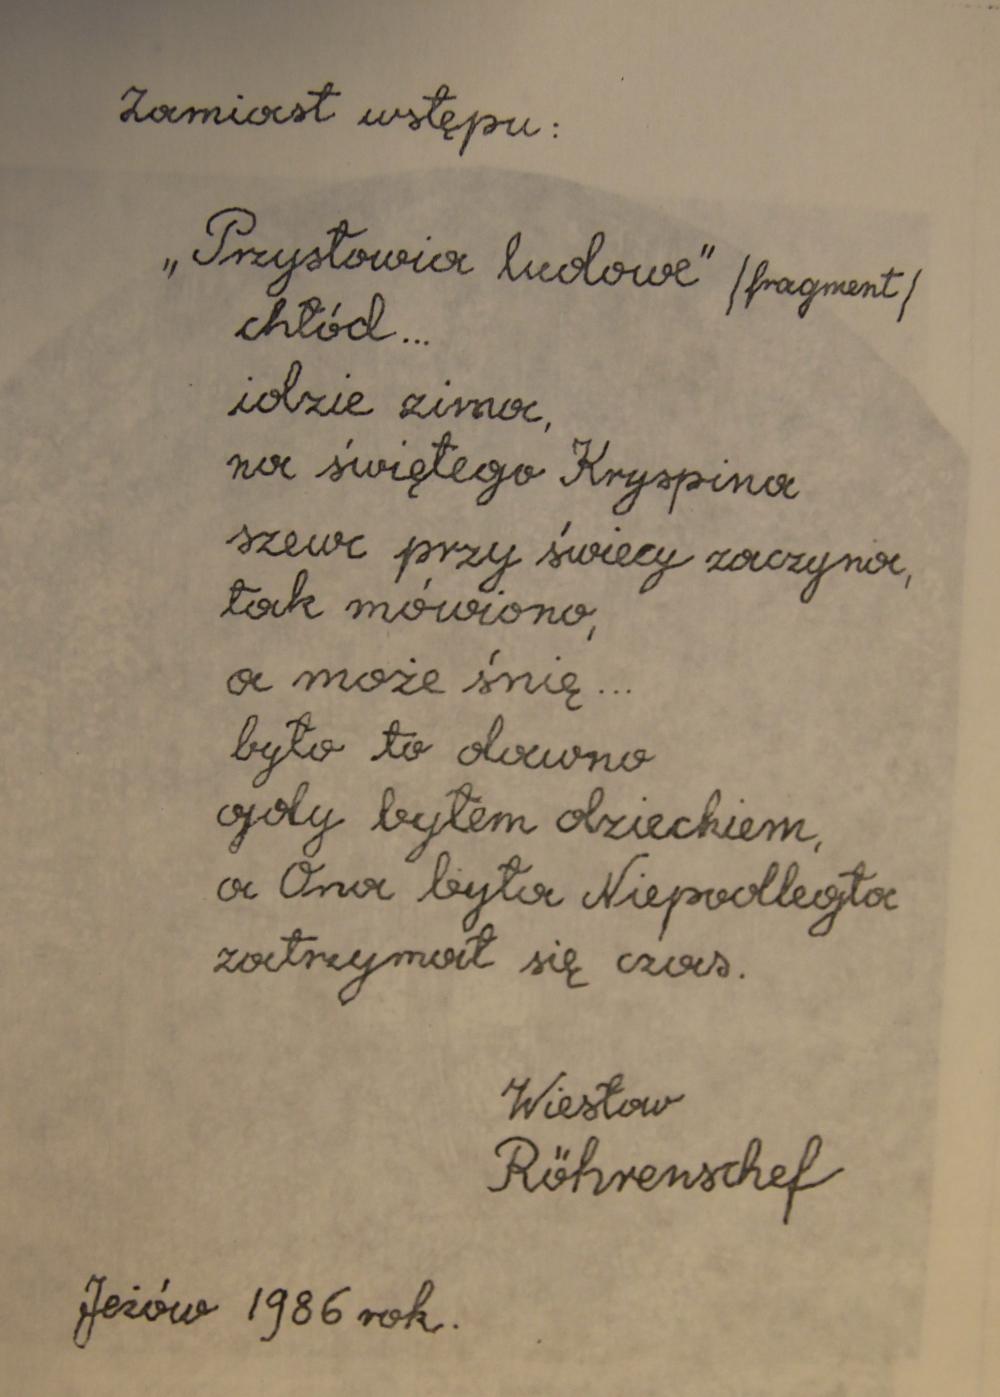 Zamiast wstępu:
„Przysłowia ludowe" /fragment/
chłód...
idzie zima,
na świętego Kryspina
szewc przy świecy zaczyna,
tak mówiono,
a może śnię...
było to dawno
gdy byłem dzieckiem,
a Ona była Niepodległa
zatrzymał się czas.
Wiesław
Röhrenschef
Jeżów 1986 rok.